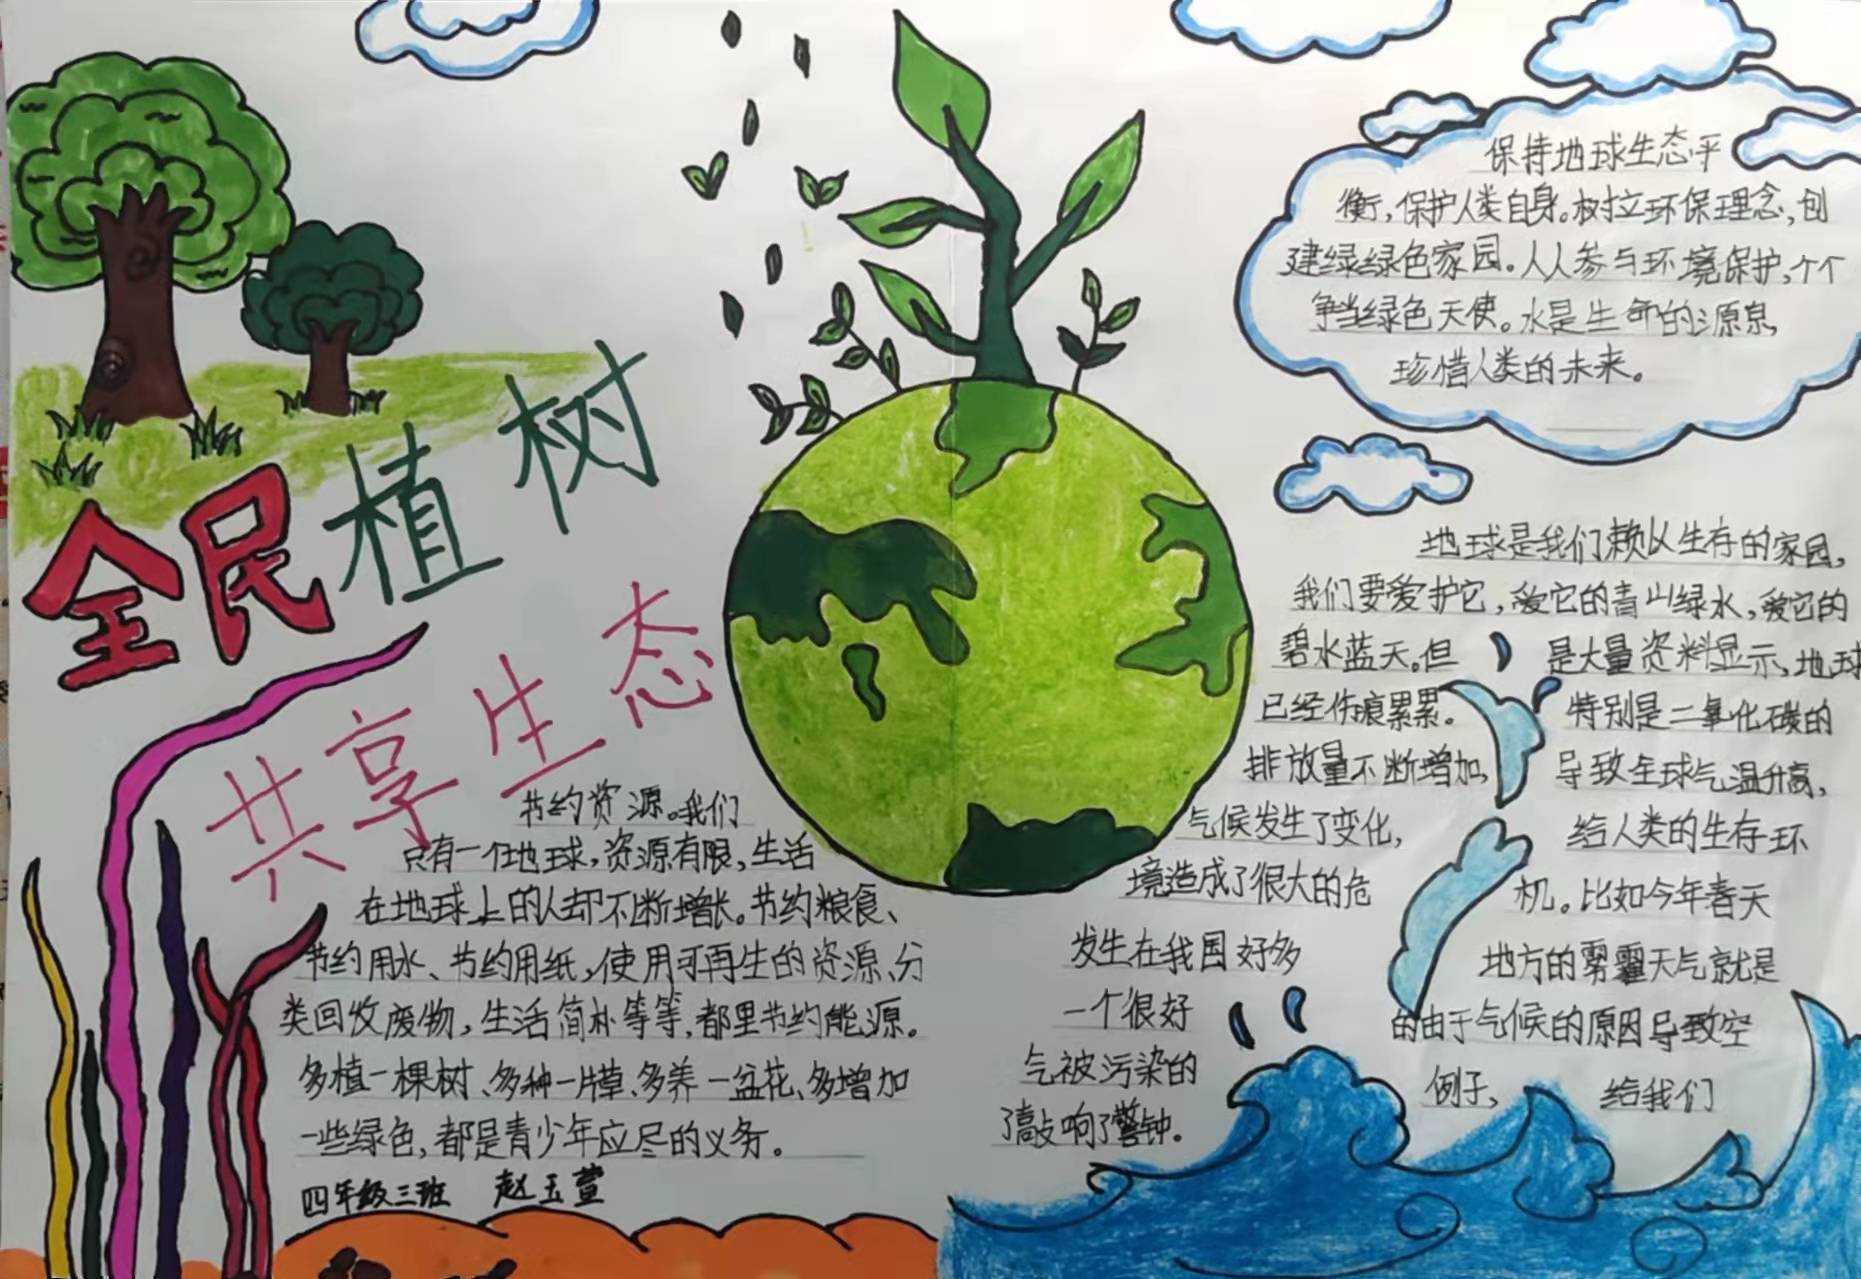 全民植树
共享生态
节约资源。我们
只有一个地球,资源有限,生活
在地球上的人却不断增长。节约粮食、
节约用水、节约用纸,使用可再生的资源、分
类回收废物,生活简朴等等,都里节约能源。
多植一棵树、多种一片草、多养一盆花、多增加
一些绿色,都是青少年应尽的义务。
四年级三班 赵玉萱
保持地球生态平
衡,保护人类自身。树立环保理念,创
建绿绿色家园。人人参与环境保护,个个
争当绿色天使。水是生命的源泉,
珍惜人类的未来。
地球是我们赖以生存的家园,
我们要爱护它,爱它的青山绿水,爱它的
碧水蓝天。但 是大量资料显示,地球
已经伤痕累累。 特别是二氧化碳的
排放量不断增加, 导致全球气温升高,
气候发生了变化, 给人类的生存环
境造成了很大的危 机。比如今年春天
发生在我国好多 地方的雾霾天气就是
一个很好 的由于气候的原因导致空
气被污染的 例子, 给我们
了敲响了警钟。